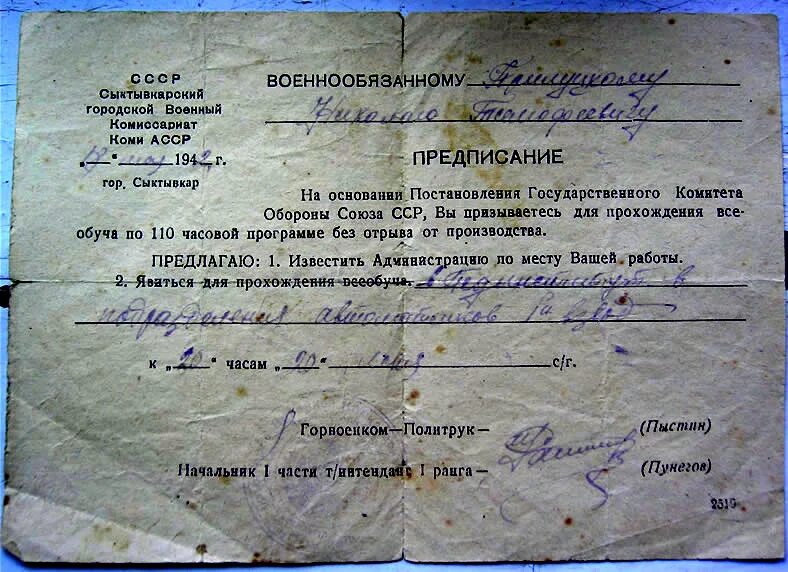 СССР
Сыктывкарский
городской Военный
Комиссариат
Коми АССР
1942 г.
гор. Сыктывкар
ВОЕННООБЯЗАННОМУ Прилуцкому
Николаю Тимофеевичу
ПРЕДПИСАНИЕ
На основании Постановления Государственного Комитета
Обороны Союза ССР, Вы призываетесь для прохождения все-
обуча по 110 часовой программе без отрыва от производства.
ПРЕДЛАГАЮ: 1. Известить Администрацию по месту Вашей работы.
2. Явиться для прохождения всеобуча. в Пединститут в
подразделения автоматчиков взвод
к „20“ часам „20“ мая с/г.
Горвоенком—Политрук— (Пыстин)
Начальник I части т/интендант I ранга— (Пунегов)
2510